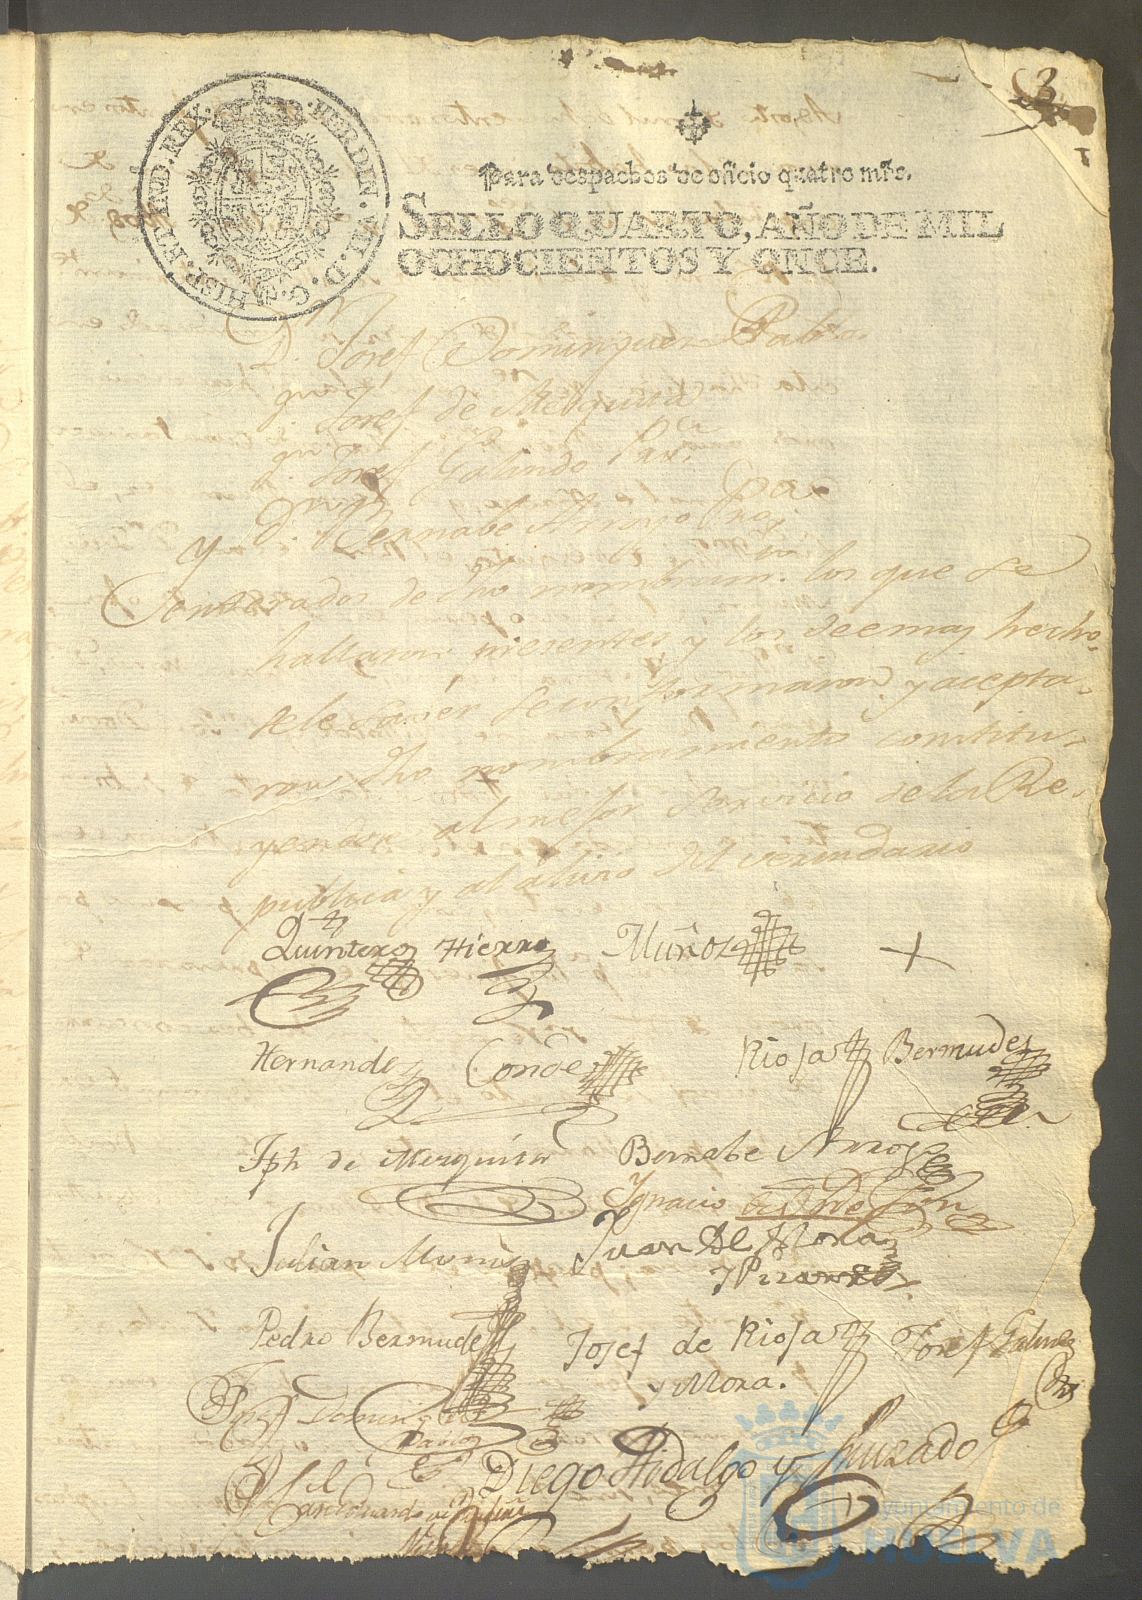 3
HISP. ET IND. REX. FERDIN. VII. D. G.
Para despachos de oficio quatro mrs.
SELLO QUARTO, AÑO DE MIL
OCHOCIENTOS Y ONCE.
D.n Josef Dominguez Pablo.
D.n Josef de Mezquita
D.n Josef Galindo
y D.n Bernabe Arroyo
Enterados de dho nombram.to los que se
hallaron presentes, y los deemas hecho
sele saver se conformaron, y acepta-
ron dho nombramiento constitu-
yendose al mejor servicio de la Re-
publica y al alivio del vecindario
Quintero Hierro Muñoz +
Hernandez Conde Rioja Bermudez
Jph de Mezquita Bernabe Arroyo
Ygnacio
Julian Muniz Juan Al. Mora
y Pizarro
Pedro Bermudez Josef de Rioja Josef Galindo
y Mora.
Josef Dominguez
Pablo
Diego Hidalgo y Hurtado
Ayuntamiento de
HUELVA